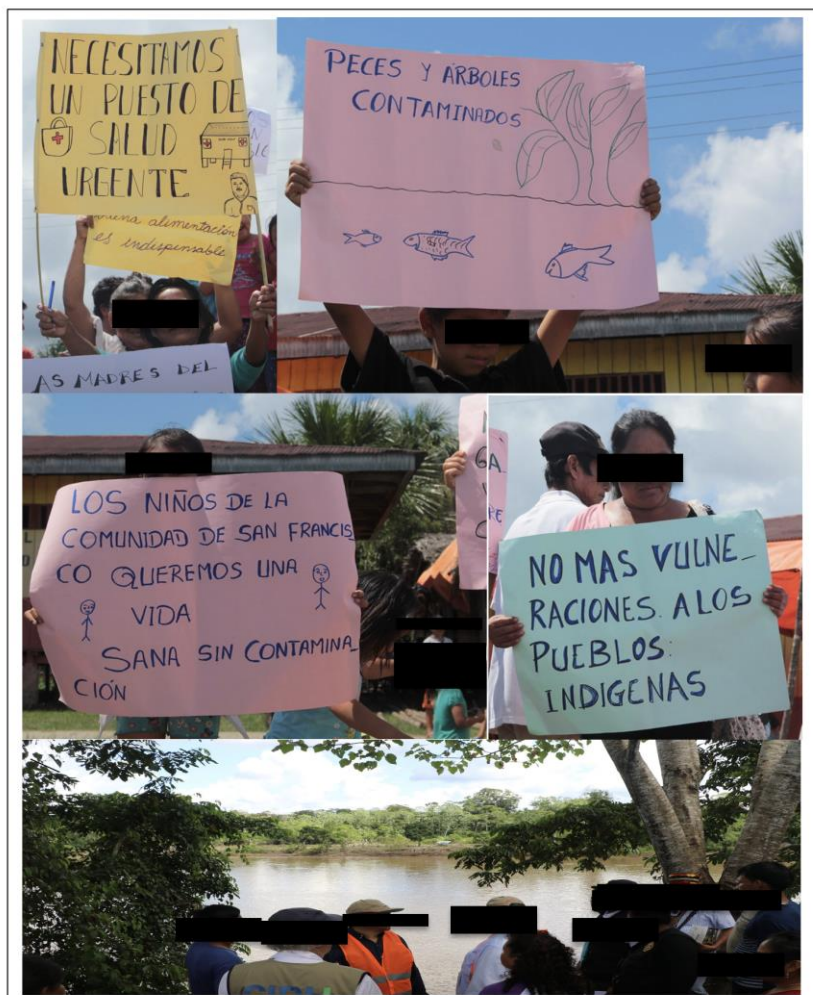 NECESITAMOS
UN PUESTO DE
SALUD
URGENTE
alimentación
es indispensable
AS MADRES DEL
PECES Y ÁRBOLES
CONTAMINADOS
LOS NIÑOS DE LA
COMUNIDAD DE SAN FRANCIS
CO QUEREMOS UNA
VIDA
SANA SIN CONTAMINA_
CIÓN
GA_
NO MAS VULNE_
RACIONES. A LOS
PUEBLOS:
INDIGENAS